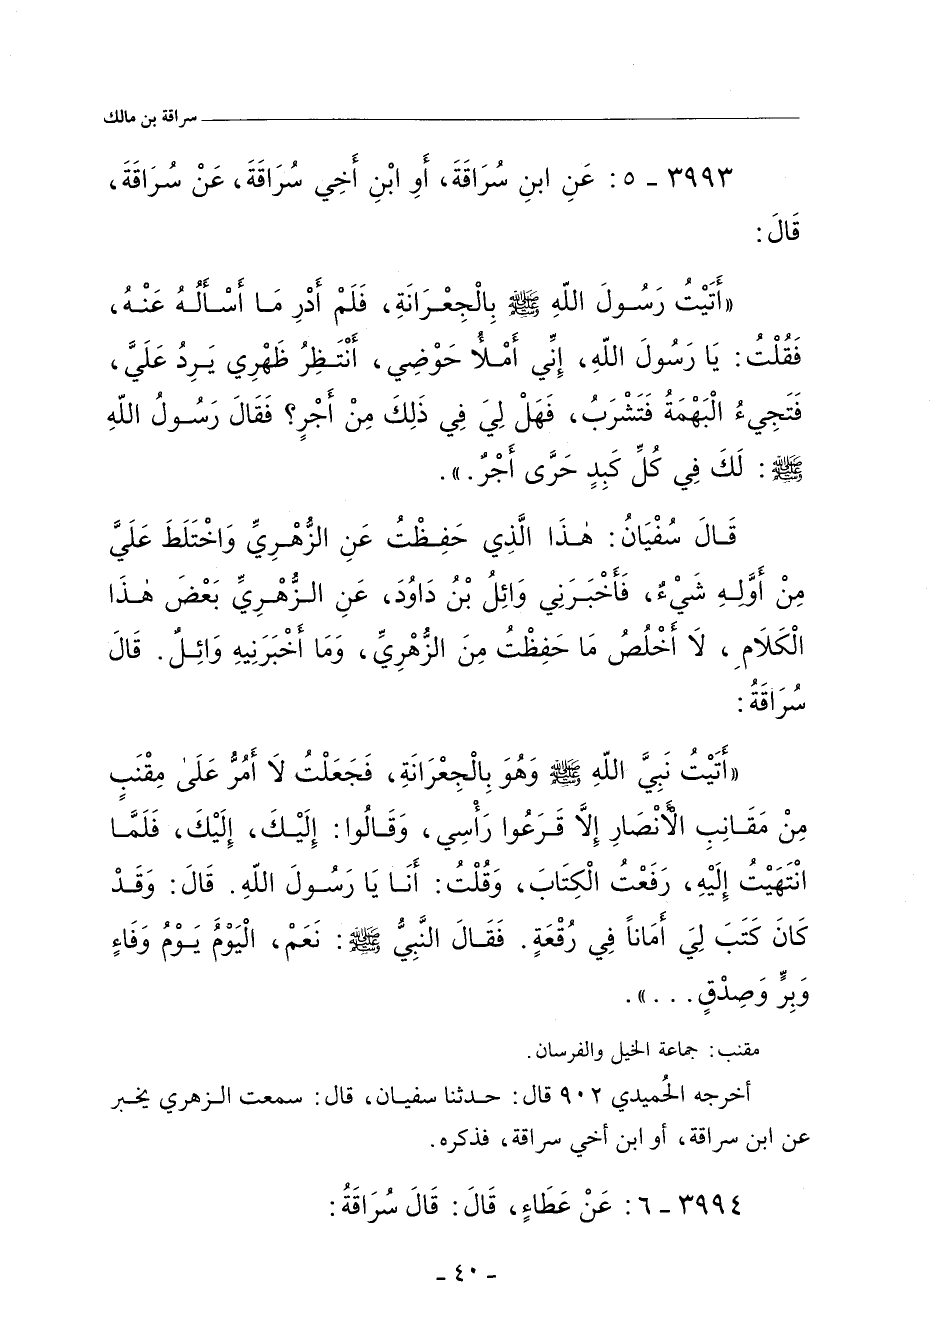 سراقة بن مالك
٣٩٩٣ ـ ٥: عَنِ ابنِ سُرَاقَةَ، أَوِ ابْنِ أَخِي سُرَاقَةَ، عَنْ سُرَاقَةَ،
قَالَ:
«أَتَيْتُ رَسُولَ اللّهِ ﷺ بِالْجِعْرَانَةِ، فَلَمْ أَدْرِ مَا أَسْأَلُهُ عَنْهُ،
فَقُلْتُ: يَا رَسُولَ اللّهِ، إِنِّي أَمْلأُ حَوْضِي، أَنْتَظِرُ ظَهْرِي يَرِدُ عَلَيَّ،
فَتَجِيءُ الْبَهْمَةُ فَتَشْرَبُ، فَهَلْ لِيَ فِي ذَلِكَ مِنْ أَجْرٍ؟ فَقَالَ رَسُولُ اللّهِ
ﷺ: لَكَ فِي كُلِّ كَبِدٍ حَرَّى أَجْرٌ.».
قَالَ سُفْيَانُ: هٰذَا الَّذِي حَفِظْتُ عَنِ الزُّهْرِيِّ وَاخْتَلَطَ عَلَيَّ
مِنْ أَوَّلِهِ شَيْءٌ، فَأَخْبَرَنِي وَائِلُ بْنُ دَاوُدَ، عَنِ الزُّهْرِيِّ بَعْضَ هٰذَا
الْكَلَامِ، لَا أَخْلُصُ مَا حَفِظْتُ مِنَ الزُّهْرِيِّ، وَمَا أَخْبَرَنِيهِ وَائِلٌ. قَالَ
سُرَاقَةُ:
«أَتَيْتُ نَبِيَّ اللّهِ ﷺ وَهُوَ بِالْجِعْرَانَةِ، فَجَعَلْتُ لَا أَمُرُّ عَلَىٰ مِقْنَبٍ
مِنْ مَقَانِبِ الْأَنْصَارِ إِلَّا قَرَعُوا رَأْسِي، وَقَالُوا: إِلَيْكَ، إِلَيْكَ، فَلَمَّا
انْتَهَيْتُ إِلَيْهِ، رَفَعْتُ الْكِتَابَ، وَقُلْتُ: أَنَا يَا رَسُولَ اللّهِ. قَالَ: وَقَدْ
كَانَ كَتَبَ لِيَ أَمَاناً فِي رُقْعَةٍ. فَقَالَ النَّبِيُّ ﷺ: نَعَمْ، الْيَوْمُ يَوْمُ وَفَاءٍ
وَبِرٍّ وَصِدْقٍ...».
مقنب: جماعة الخيل والفرسان.
أخرجه الحُميدي ٩٠٢ قال: حدثنا سفيان، قال: سمعت الزهري يخبر
عن ابن سراقة، أو ابن أخي سراقة، فذكره.
٣٩٩٤ ـ ٦: عَنْ عَطَاءٍ، قَالَ: قَالَ سُرَاقَةُ:
- ٤٠ -